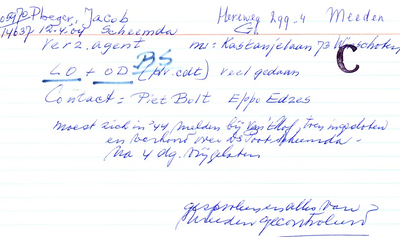 Ploeger, Jacob Hereweg 299-4 Meeden
14637 12.4.04 Scheemda
Verz. agent nu: Kastanjelaan 73 Winschoten
C
BS
LO + OD (pv. cdt) veel gedaan
Contact = Piet Bolt Eppo Edzes
moest zich in '44 melden bij van't Hof, toen ingesloten
en verhoord over Ds Poot Scheemda -
Na 4 dg. vrijgelaten
gesproken en alles van
Meeden gecontroleerd